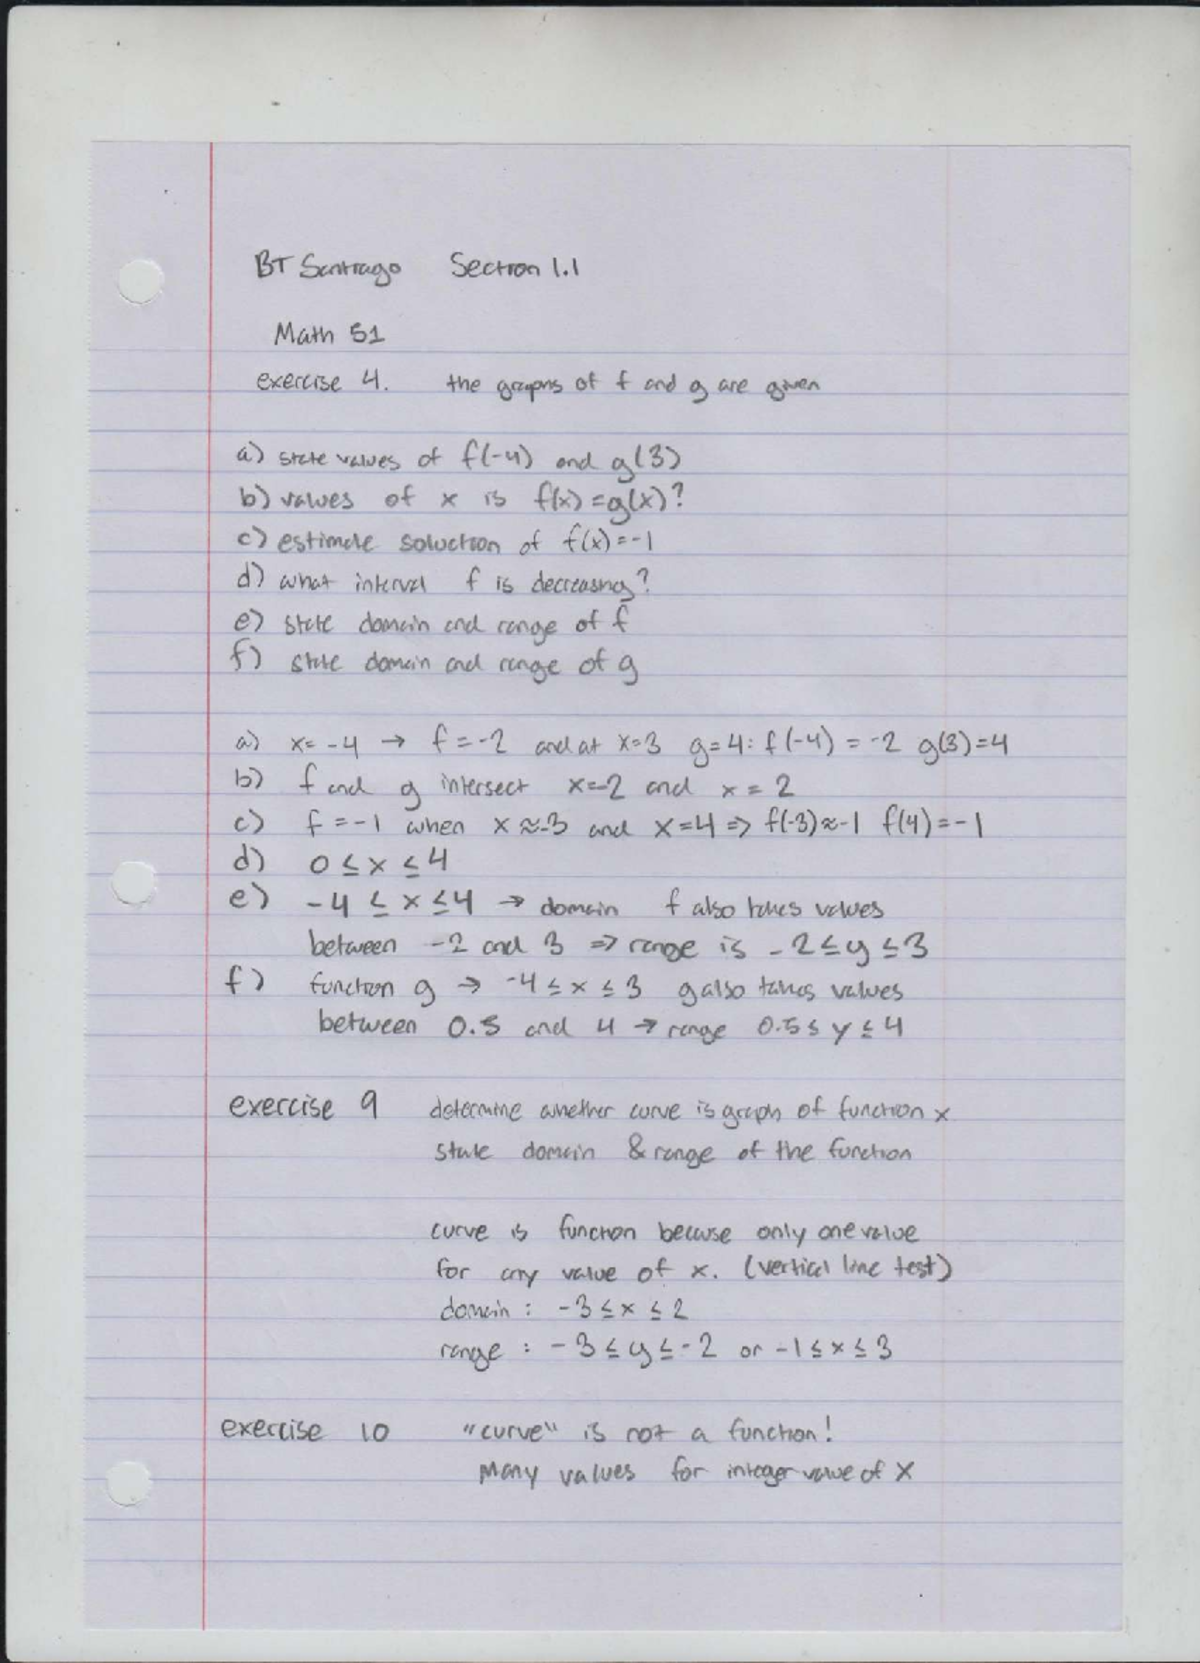 BT Santiago Section 1.1
Math 51
exercise 4. the graphs of f and g are given
a) state values of f(-4) and g(3)
b) values of x is f(x) = g(x)?
c) estimate soluction of f(x) = -1
d) what interval f is decreasing?
e) state domain and range of f
f) state domain and range of g
a) x = -4 → f = -2 and at x=3 g=4: f(-4) = -2 g(3)=4
b) f and g intersect x=-2 and x = 2
c) f = -1 when x ≈ -3 and x=4 => f(-3) ≈ -1 f(4) = -1
d) 0 ≤ x ≤ 4
e) -4 ≤ x ≤ 4 → domain f also takes values
between -2 and 3 => range is -2 ≤ y ≤ 3
f) function g → -4 ≤ x ≤ 3 g also takes values
between 0.5 and 4 → range 0.5 ≤ y ≤ 4
exercise 9 determine whether curve is graph of function x
state domain & range of the function
curve is function because only one value
for any value of x. (vertical line test)
domain : -3 ≤ x ≤ 2
range : -3 ≤ y ≤ -2 or -1 ≤ x ≤ 3
exercise 10 "curve" is not a function!
Many values for integer value of X